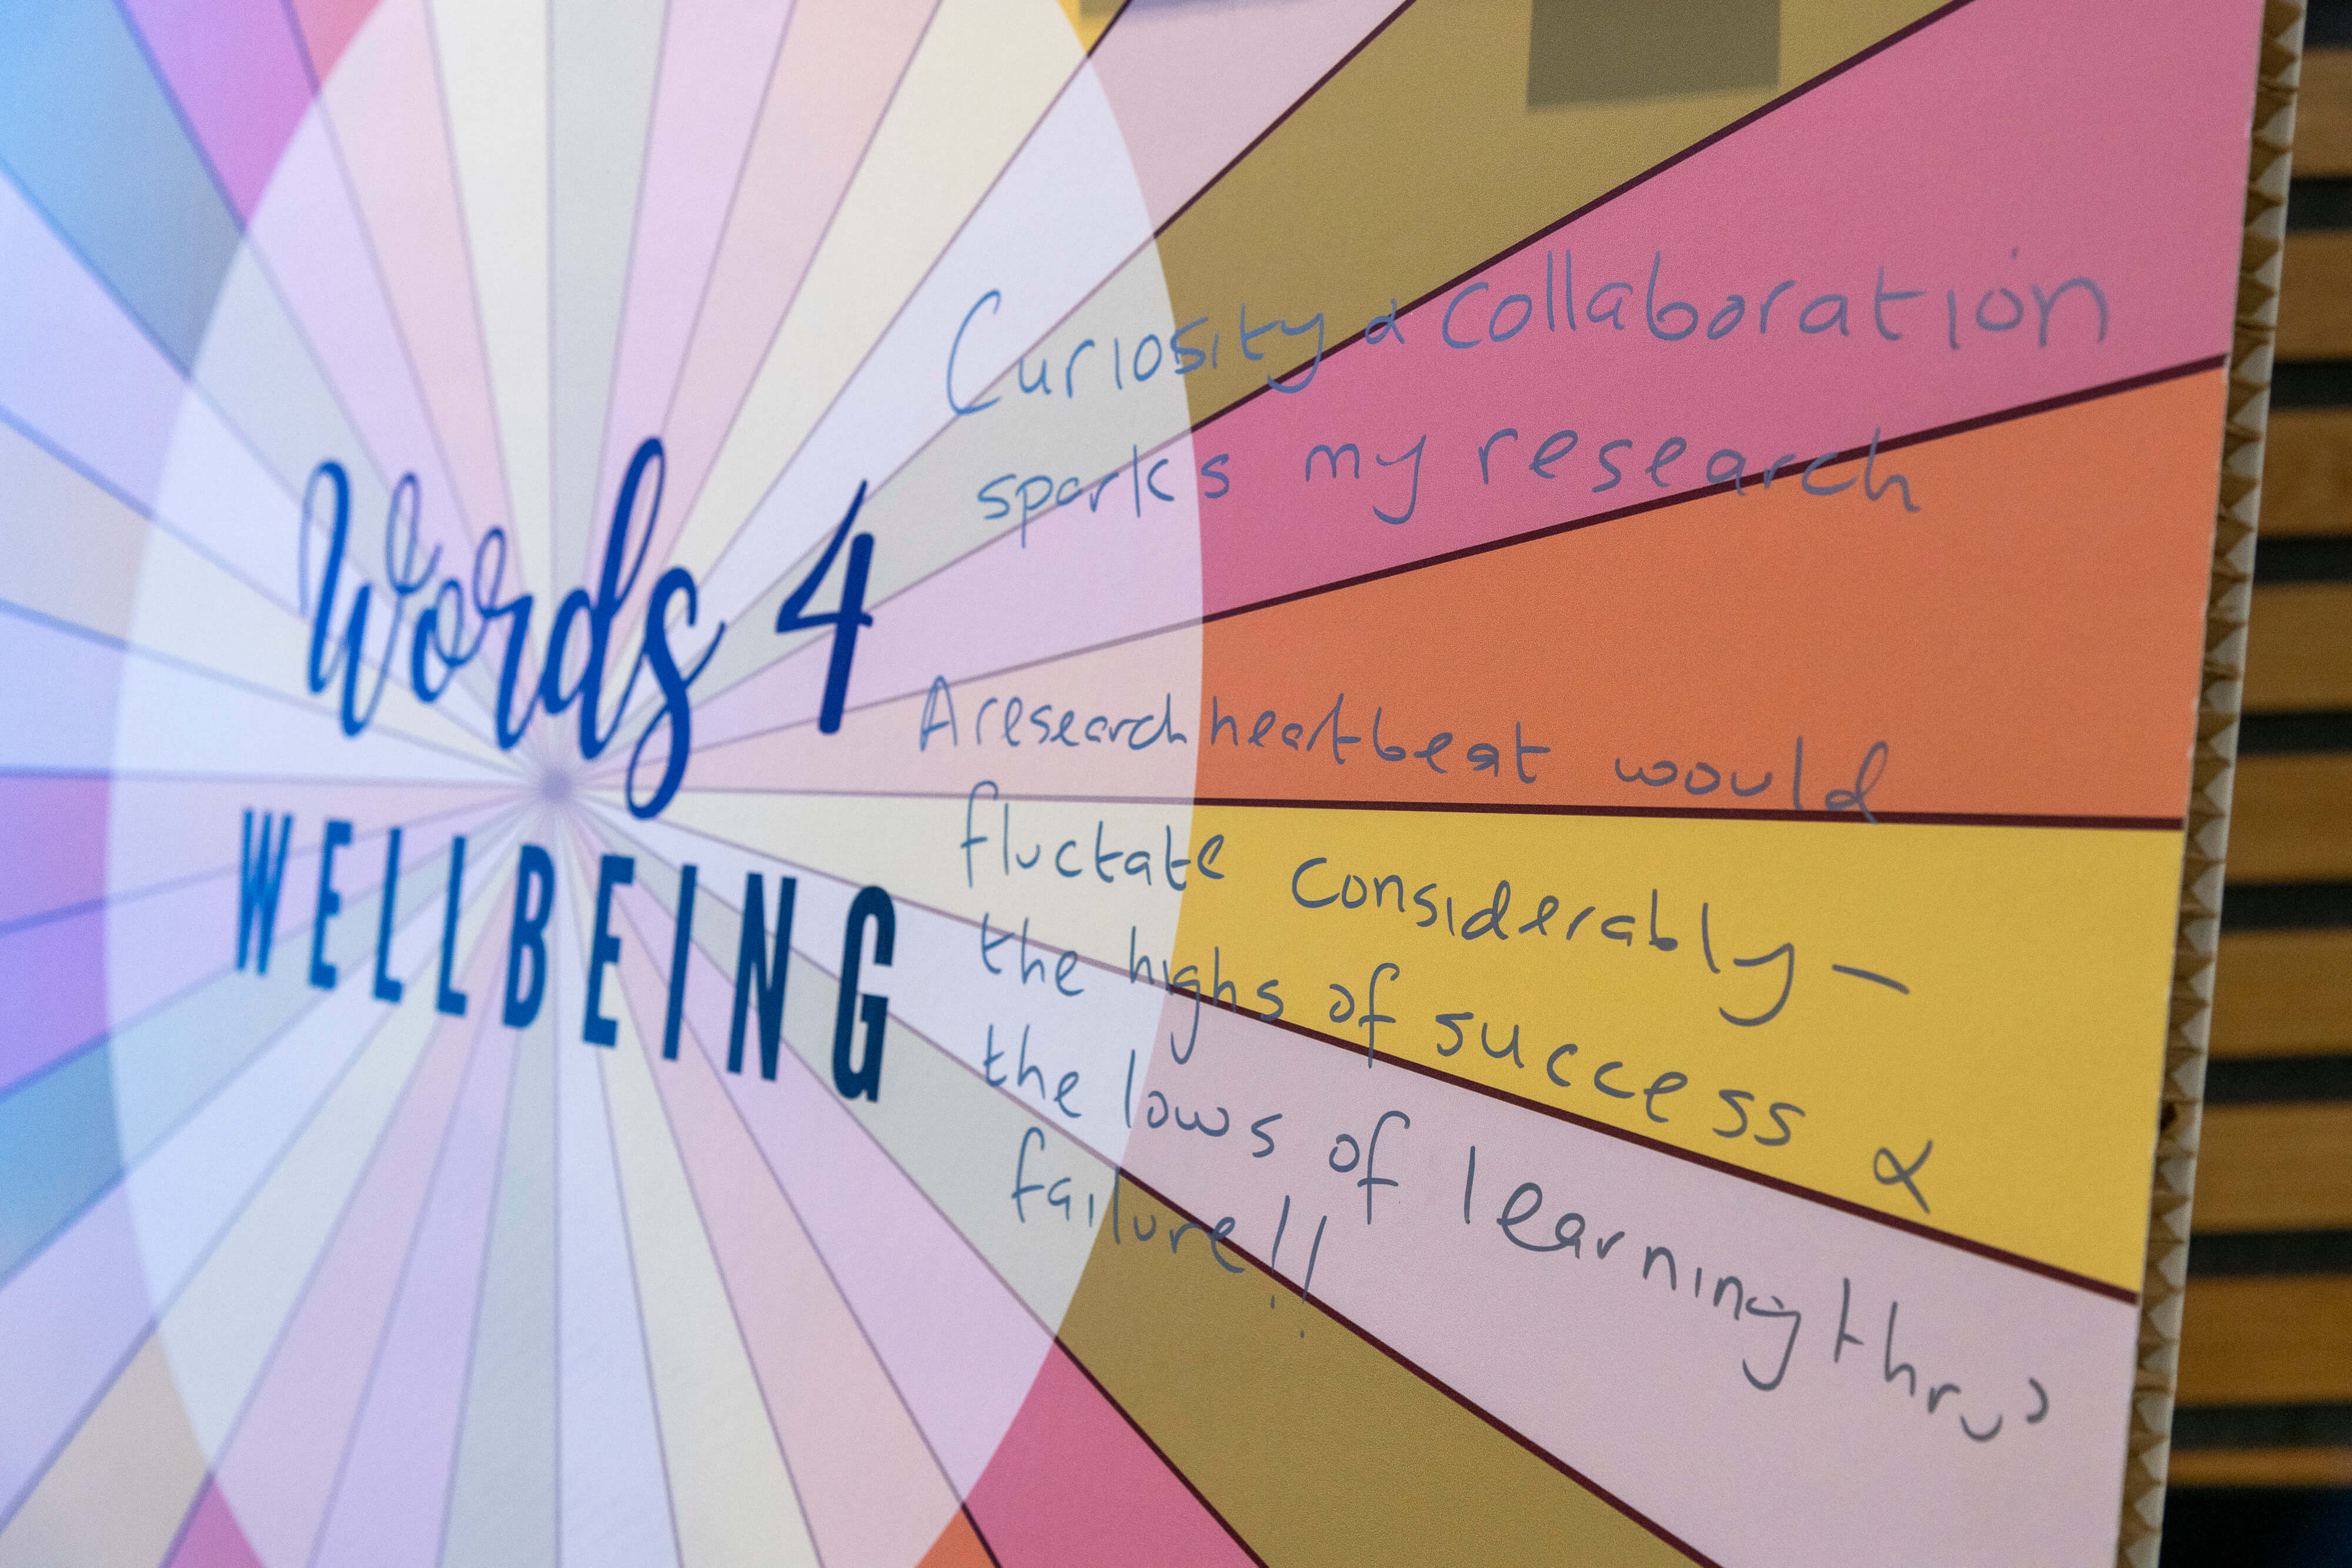 Words 4
WELLBEING
Curiosity & collaboration
sparks my research
A research heartbeat would
fluctate considerably –
the highs of success &
the lows of learning thru'
failure!!